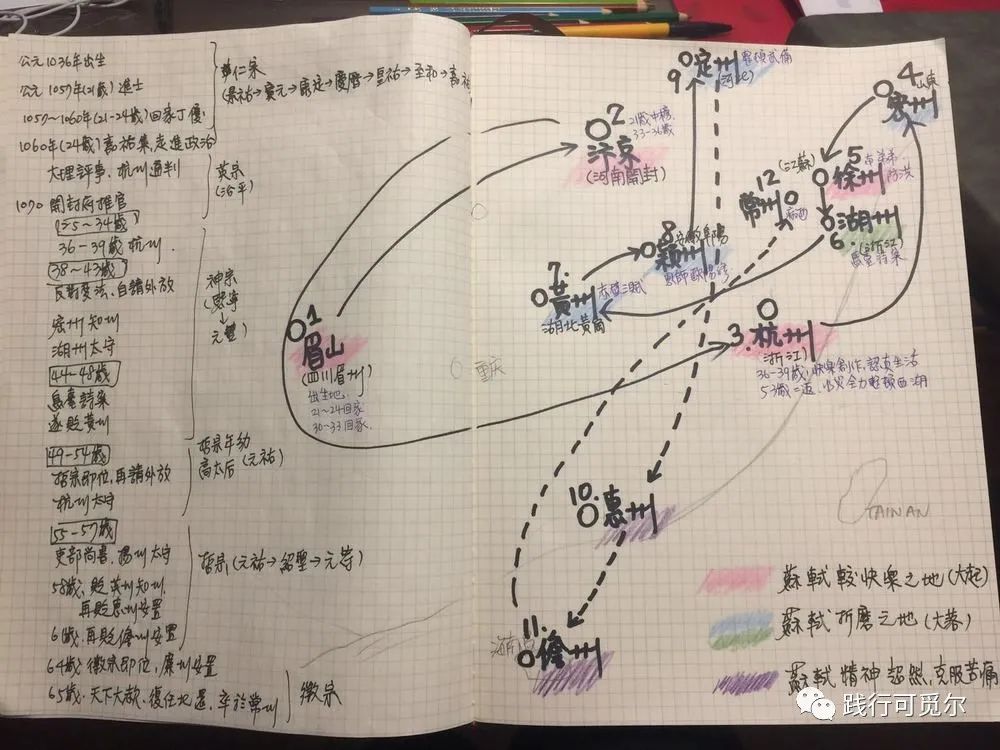 公元1036年出生
公元1057年(21歲)進士
1057~1060年(21-24歲)回家丁優
1060年(24歲)嘉祐集,走進政治
大理評事、杭州通判
1070 開封府推官
36-39歲 杭州
38~43歲
反對變法,自請外放
密州知州
湖州太守
44~48歲
烏臺詩案
遂貶黃州
49-54歲
哲宗即位,再請外放
杭州太守
55-57歲
吏部尚書、揚州太守
58歲,貶英州知州,
再貶惠州安置
61歲,再貶儋州安置
64歲,徽宗即位,廉州安置
65歲,天下大赦,復任北還,卒於常州
仁宗
(景祐→寶元→康定→慶曆→皇祐→至和→嘉祐
英宗
(治平)
神宗
(熙寧
元豐)
哲宗年幼
高太后(元祐)
哲宗(元祐→紹聖→元符)
徽宗
1
眉山
(四川眉州)
出生地
21~24回家
30~33回家
2
汴京
(河南開封)
21歲中榜
33-36歲
3.杭州
(浙江)
36-39歲,快樂創作,認真生活
4 山東
密州
(江蘇)
5
徐州
6.
湖州
(浙江)
烏臺詩案
7.
黃州
湖北黃岡
赤壁三賦
8 安徽阜陽
潁州
恩師歐陽修
9
定州
(河北)
整頓武備
10.
惠州
11.
儋州
12
常州
重庆
TAINAN
蘇軾較快樂之地(大起)
蘇軾折磨之地(大落)
蘇軾精神超然,克服苦痛
践行可觅尔